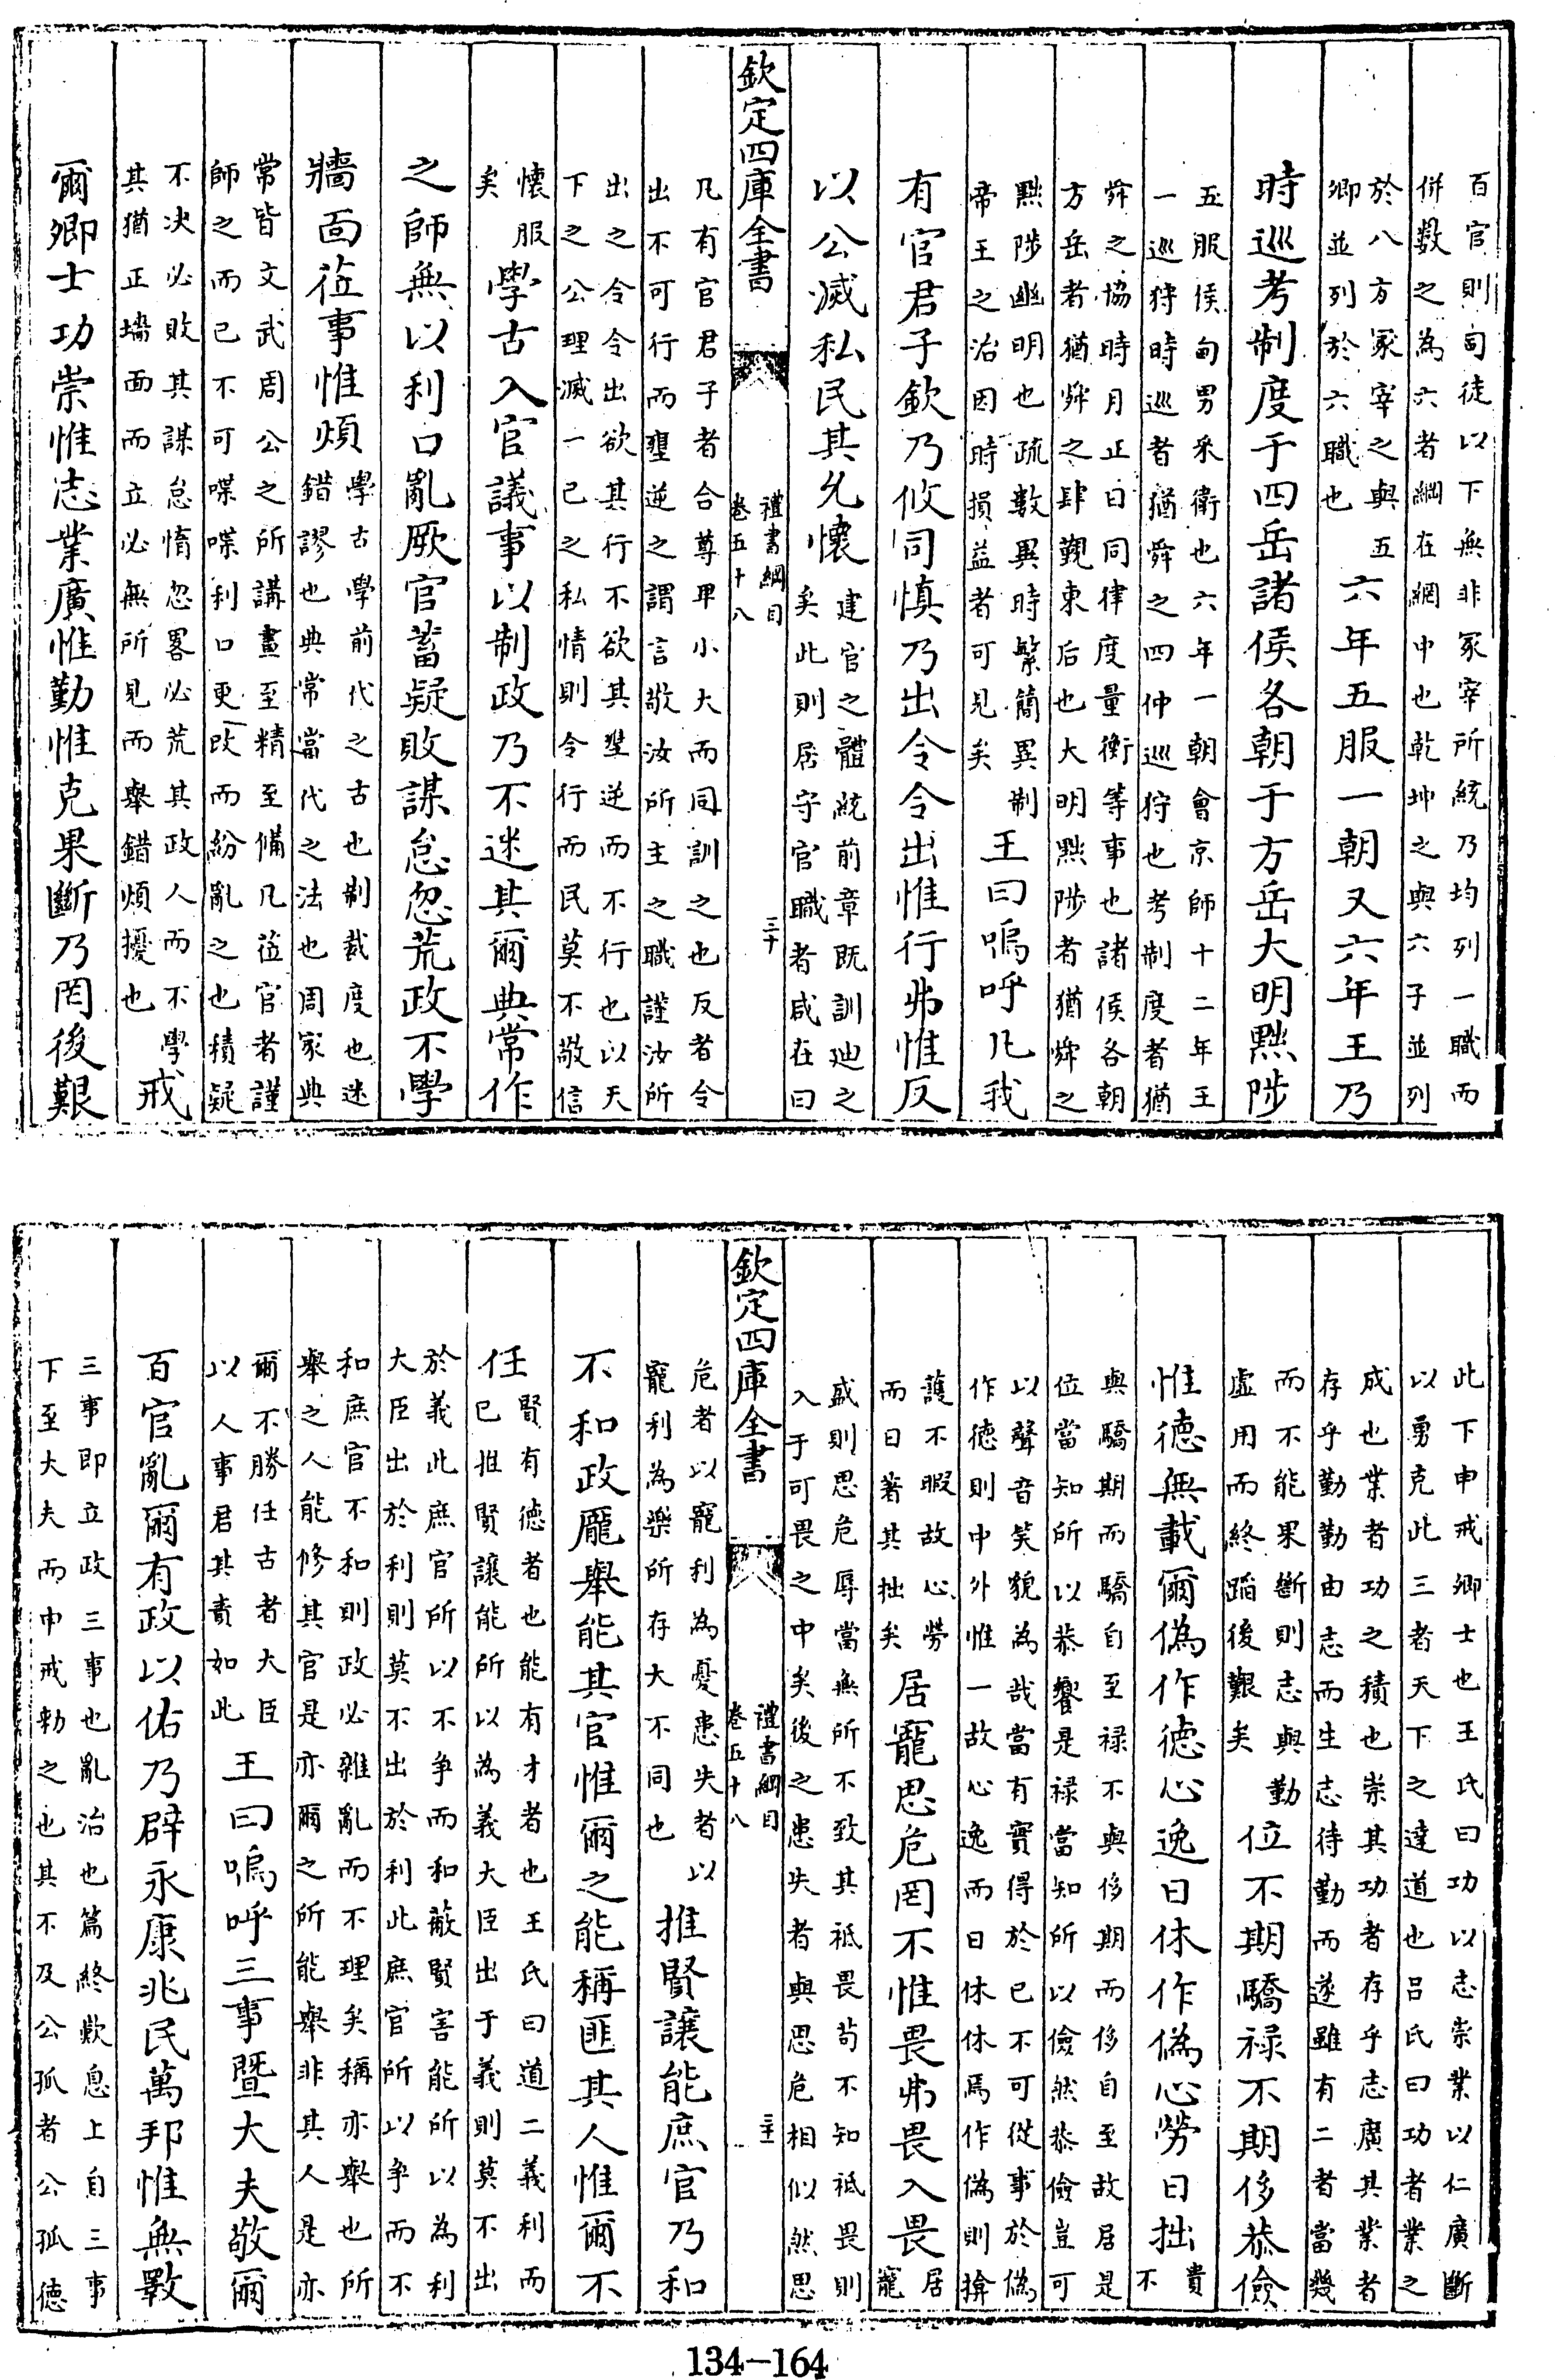 百官則司徒以下無非冢宰所統乃均列一職而
併數之為六者綱在網中也乾坤之與六子並列
於八方冢宰之與五
卿並列於六職也
六年五服一朝又六年王乃
時巡考制度于四岳諸侯各朝于方岳大明黜陟
五服侯甸男采衛也六年一朝會京師十二年王
一巡狩時巡者猶舜之四仲巡狩也考制度者猶
舜之協時月正日同律度量衡等事也諸侯各朝
方岳者猶舜之肆覲東后也大明黜陟者猶舜之
黜陟幽明也疏數異時繁簡異制
帝王之治因時損益者可見矣
王曰嗚呼凡我
有官君子欽乃攸司慎乃出令令出惟行弗惟反
以公滅私民其允懷
建官之體統前章既訓迪之
矣此則居守官職者咸在曰
欽定四庫全書
禮書綱目
卷五十八
三十
凡有官君子者合尊卑小大而同訓之也反者令
出不可行而壅逆之謂言敬汝所主之職謹汝所
出之令令出欲其行不欲其壅逆而不行也以天
下之公理滅一己之私情則令行而民莫不敬信
懷服
矣
學古入官議事以制政乃不迷其爾典常作
之師無以利口亂厥官蓄疑敗謀怠忽荒政不學
牆面莅事惟煩
學古學前代之古也制裁度也迷
錯謬也典常當代之法也周家典
常皆文武周公之所講畫至精至備凡莅官者謹
師之而已不可喋喋利口更改而紛亂之也積疑
不決必敗其謀怠惰忽畧必荒其政人而不學
其猶正墻面而立必無所見而舉錯煩擾也
戒
爾卿士功崇惟志業廣惟勤惟克果斷乃罔後艱
此下申戒卿士也王氏曰功以志崇業以仁廣斷
以勇克此三者天下之達道也呂氏曰功者業之
成也業者功之積也崇其功者存乎志廣其業者
存乎勤勤由志而生志待勤而遂雖有二者當幾
而不能果斷則志與勤
虛用而終蹈後艱矣
位不期驕祿不期侈恭儉
惟德無載爾偽作德心逸日休作偽心勞日拙
貴
不
與驕期而驕自至祿不與侈期而侈自至故居是
位當知所以恭饗是祿當知所以儉然恭儉豈可
以聲音笑貌為哉當有實得於己不可從事於偽
作德則中外惟一故心逸而日休休焉作偽則揜
護不暇故心勞
而日著其拙矣
居寵思危罔不惟畏弗畏入畏
居
寵
盛則思危辱當無所不致其祗畏苟不知祗畏則
入于可畏之中矣後之患失者與思危相似然思
欽定四庫全書
禮書綱目
卷五十八
三十一
危者以寵利為憂患失者以
寵利為樂所存大不同也
推賢讓能庶官乃和
不和政厖舉能其官惟爾之能稱匪其人惟爾不
任
賢有德者也能有才者也王氏曰道二義利而
已推賢讓能所以為義大臣出于義則莫不出
於義此庶官所以不爭而和蔽賢害能所以為利
大臣出於利則莫不出於利此庶官所以爭而不
和庶官不和則政必雜亂而不理矣稱亦舉也所
舉之人能修其官是亦爾之所能舉非其人是亦
爾不勝任古者大臣
以人事君其責如此
王曰嗚呼三事暨大夫敬爾
百官亂爾有政以佑乃辟永康兆民萬邦惟無斁
三事即立政三事也亂治也篇終歎息上自三事
下至大夫而申戒勅之也其不及公孤者公孤德
134-164